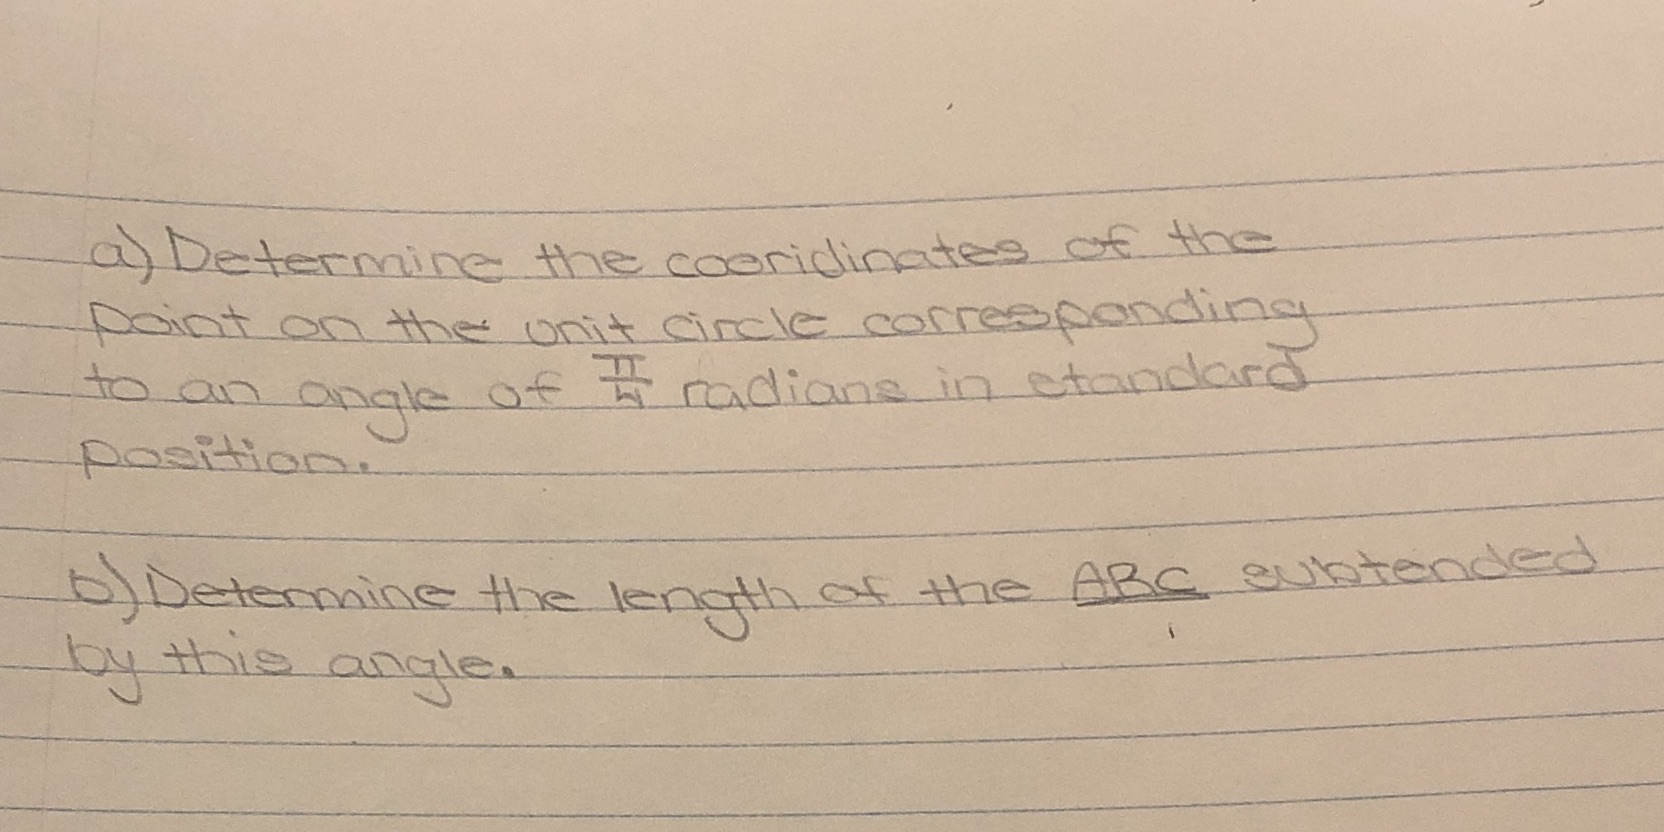 a) Determine the cooridinates of the
point on the unit circle corresponding
to an angle of π/4 radians in standard
position.
b) Determine the length of the ABC subtended
by this angle.